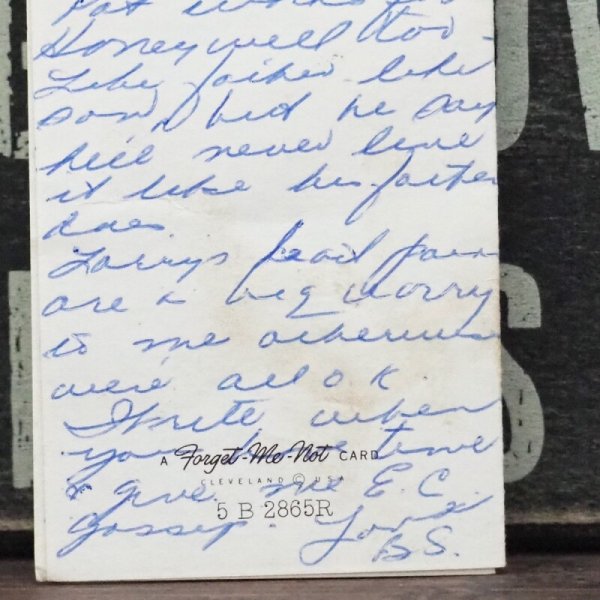 Pat works for
Honeywell too -
Like father like
son, but he say
he'll never live
it like his father
does.
Larrys head pain
are a big worry
to me otherwise
we're all O K.
Write when
you have time
& give me E.C.
gossip. Love
B S.
A Forget-Me-Not CARD
CLEVELAND © USA
5 B 2865R